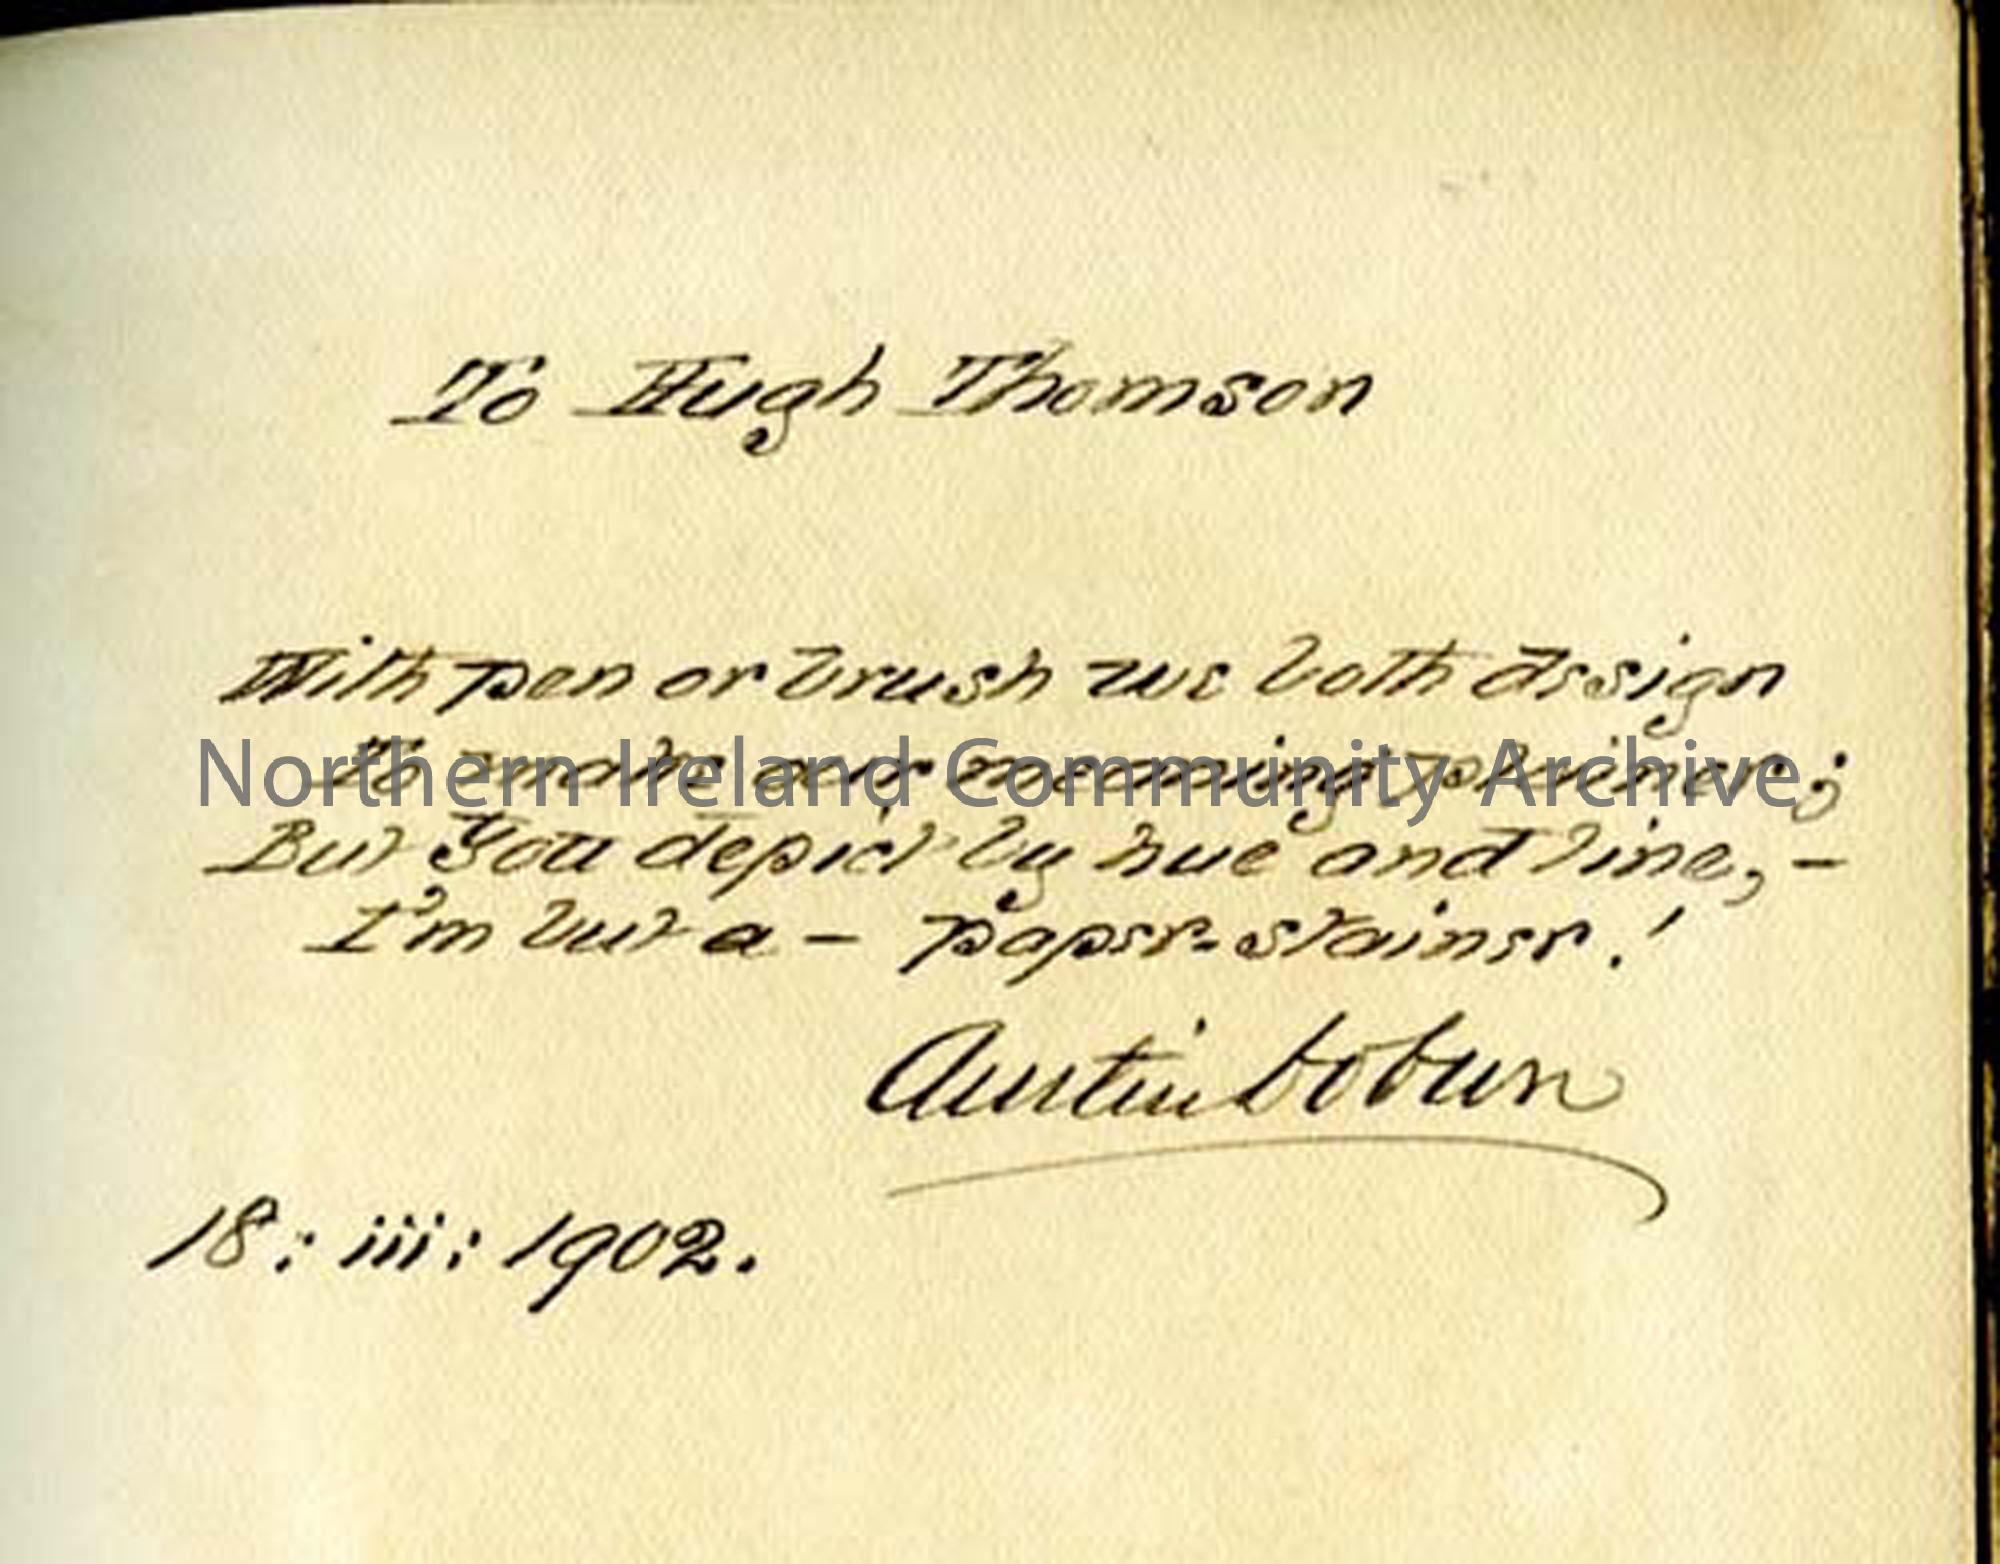 To Hugh Thomson
With pen or brush we both design
To make our meaning plainer;
Northern Ireland Community Archive
But You depict by hue and line, –
I'm but a – paper-stainer!
Austin Dobson
18: iii: 1902.